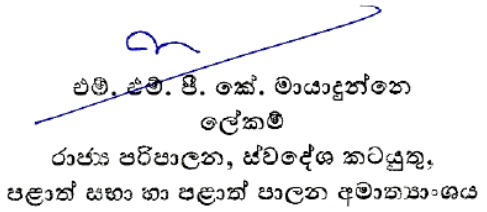 එම්. එම්. පී. කේ. මායාදුන්නෙ
ලේකම්
රාජ්‍ය පරිපාලන, ස්වදේශ කටයුතු,
පළාත් සභා හා පළාත් පාලන අමාත්‍යාංශය